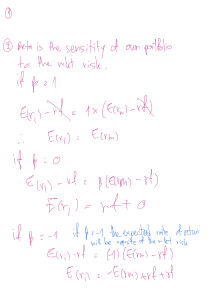 ①
② Beta is the sensitity of our portfolio
to the mkt risk.
if β = 1
E(ri) - rf = 1x (E(rm) - rf)
∴ E(ri) = E(rm)
if β = 0
E(ri) - rf = β(E(rm) - rf)
E(ri) = rf + 0
if β = -1 if β = -1, the expected rate of return
will be opposite of the mkt risk
E(ri) - rf = (-1) (E(rm) - rf)
E(ri) = -E(rm) + rf + rf